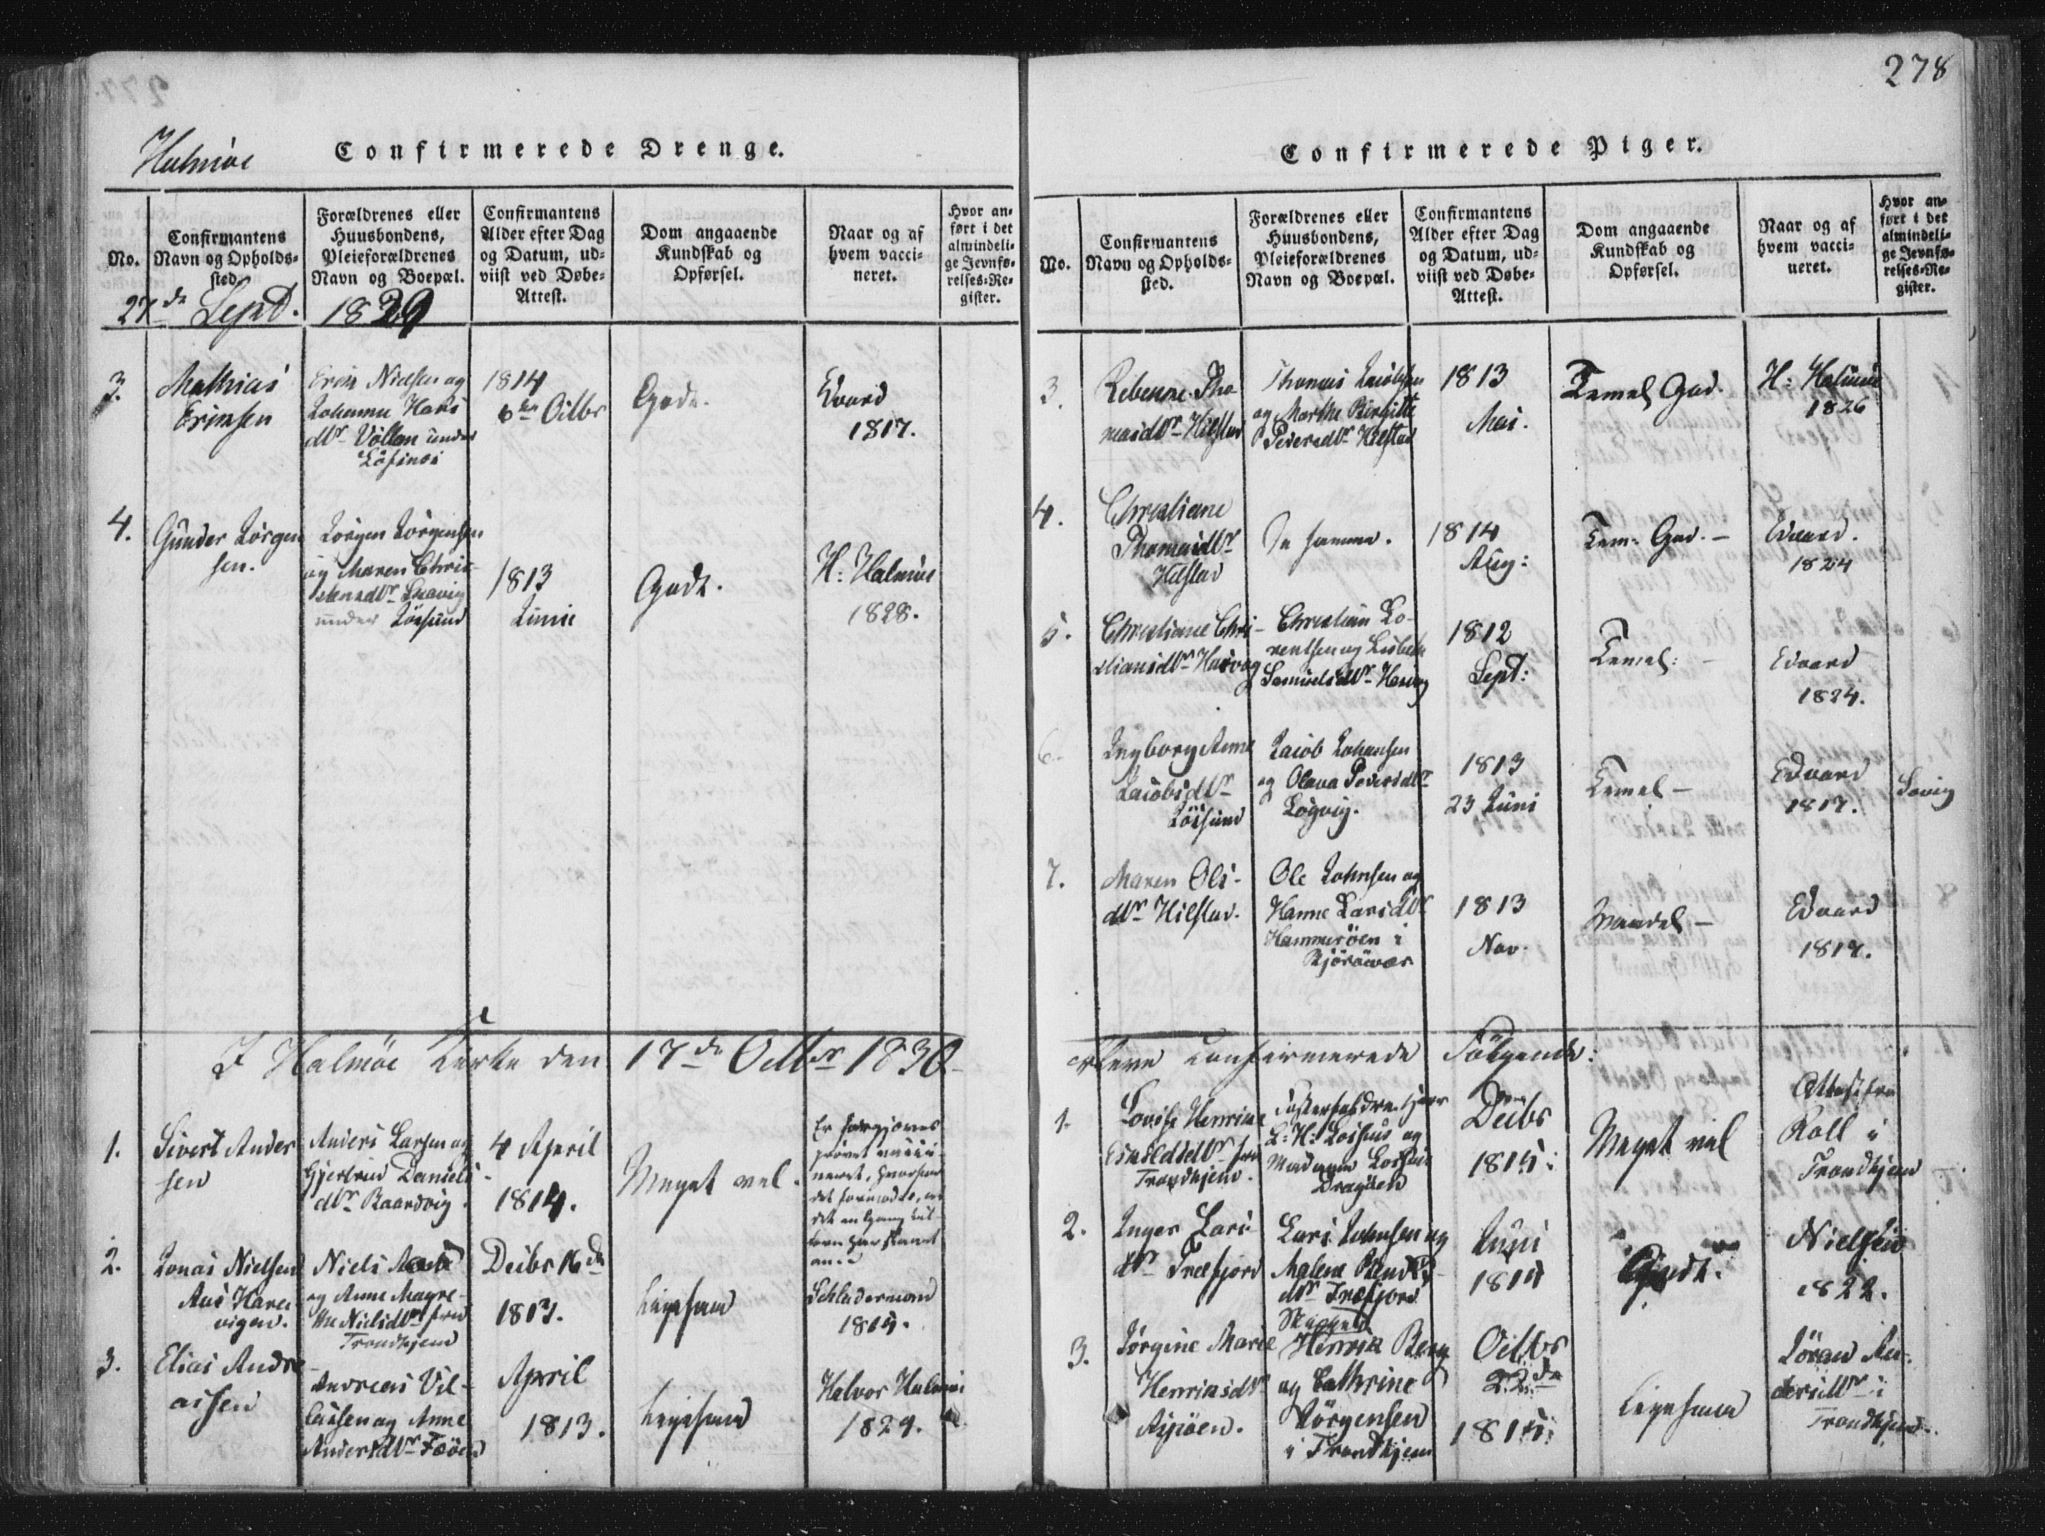 278
Halmøe
Confirmerede Drenge.
No.
Confirmantens
Navn og Opholds-
sted.
Forældrenes eller
Huusbondens,
Pleieforældrenes
Navn og Boepæl.
Confirmantens
Alder efter Dag
og Datum, ud-
viist ved Døbe-
Attest.
Dom angaaende
Kundskab og
Opførsel.
Naar og af
hvem vacci-
neret.
Hvor an-
ført i det
almindeli-
ge Jevnfø-
relses-Re-
gister.
27de Sept. 1829
3.
Mathias
Ericksen
Erik Nielsen og
Johanna Hans
dtr Vollan under
1814
6te Octbr
Godt.
Edvard
1817.
4.
Gunder Jørgen
sen.
Jørgen Jørgensen
og Maren Chris-
tensdtr
under Lösund
1813
Junii
Godt.
H: Halmøe
1828.
I Halmöe Kirke den 17de Octbr 1830
1.
Sivert Ander
sen
Anders Larsen og
Gjertrud Daniels
dtr Baardvig.
4 April
1814.
Meget vel.
Er forgjæves
prøvet vacci-
neret, hvorfor
det formodes, at
det en Gang til-
forn har skeet
2.
Jonas Nielsen
vigen.
Niels
og Anne Magre-
the Nielsdtr fra
Trondhjem
Decbr 16de
1813.
Ligesaa
Schludermand
1819.
3.
Elias Andre
assen
Andreas Vil-
lassen og Anne
Andersdtr
April
1813.
Ligesaa
Halvor Halmøe
1829.
Confirmerede Piger.
No.
Confirmantens
Navn og Opholds-
sted.
Forældrenes eller
Huusbondens,
Pleieforældrenes
Navn og Boepæl.
Confirmantens
Alder efter Dag
og Datum, ud-
viist ved Døbe-
Attest.
Dom angaaende
Kundskab og
Opførsel.
Naar og af
hvem vacci-
neret.
Hvor an-
ført i det
almindeli-
ge Jevnfø-
relses-Re-
gister.
3.
Rebecca Tho
masdtr Hilstad
Thomas Jacobsen
og Marthe Birgitte
Pedersdtr Hilstad
1813
Mai.
Temel. God.
H: Halmøe
1826
4.
Christiane
Thomasdtr
Hilstad
De samme.
1814
Aug:
Tem. God. -
Edvard.
1824
5.
Christiane Chri-
stiansdtr Harvog
Christian Lo-
rentsen og Lisbeth
Samuelsdtr Harvog
1812
Sept:
Temel: -
Edvard
1824.
6.
Ingborg Anne
Jacobsdtr
Lösund
Jacob Johansen
og Olava Pedersdtr
Logvig.
1813
23 Juni
Temel -
Edvard
1817.
7.
Maren Ols-
dtr Hilstad.
Ole Johnsen og
Hanne Larsdtr
Hammeröen i
Björöevær
1813
Nov.
Maadel -
Edvard
1817.
ere confirmerede Følgende:
1.
Lovise Henrine
fra
Trondhjem.
Fosterforældre Herr
L: H: Lossius og
Madame Lossius
Dragöen
Decbr
1815:
Meget vel
Attest fra
Roll i
Trondhjem
2.
Inger Lars
dtr Træfjord
Lars Johnsen og
Malene
dtr Træfjord
Juni
Godt.
Nielsen
1822.
3.
Jörgine Marie
Henriksdtr
Henrik Berg
og Cathrine
Jörgensen
i Trondhjem
Octbr
22de
1815:
Ligesaa
Jöran An-
dersdtr i
Trondhjem.